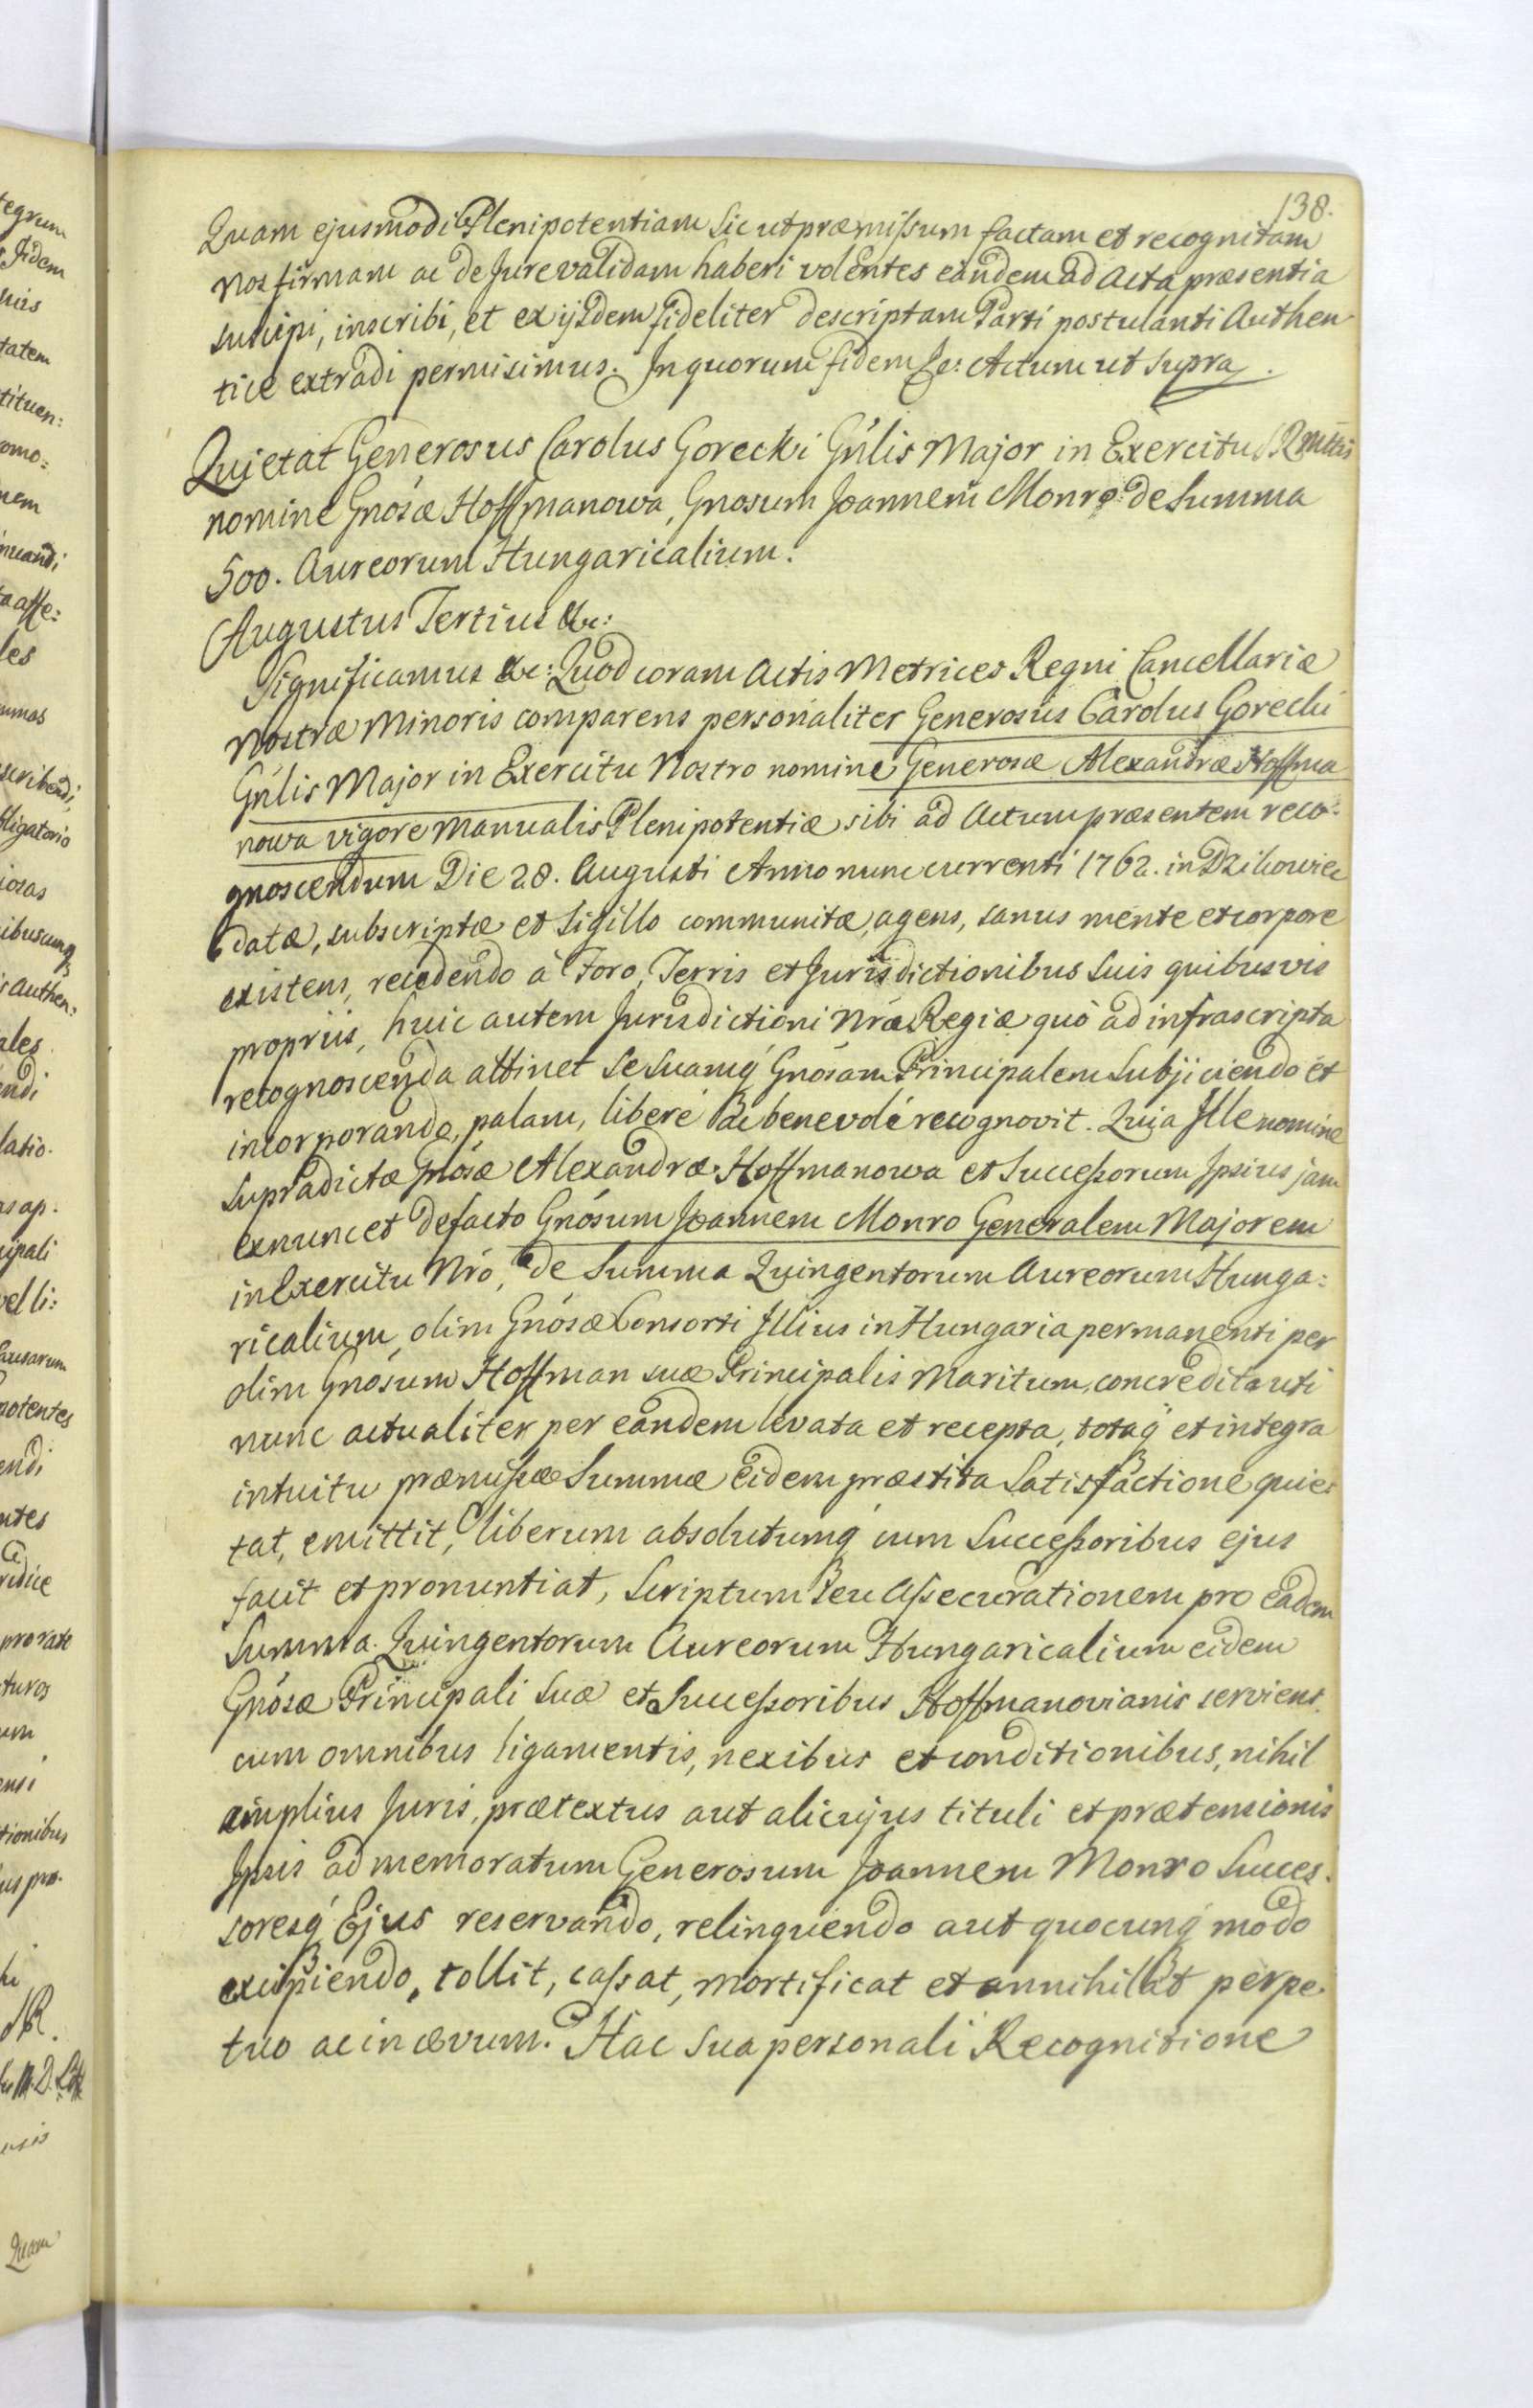 138.
Quam ejusmodi Plenipotentiam Sic ut præmissum factam et recognitam
nos firmam ac de Jure validam haberi volentes eandem ad Acta præsentia
suscipi, inscribi, et ex ijsdem fideliter descriptam Parti postulanti Authen
tice extradi permisimus. In quorum fidem &c: Actum ut supra.
Quietat Generosus Carolus Gorecki Gnlis Major in Exercitu S. R.
nomine Gnosæ Hoffmanowa, Gnosum Joannem Monro de Summa
500. Aureorum Hungaricalium.
Augustus Tertius &c:
Significamus &c: Quod coram Actis Metrices Regni Cancellariæ
Nostræ Minoris comparens personaliter Generosus Carolus Gorecki
Gnlis Major in Exercitu Nostro nomine Generosæ Alexandræ Hoffma
nowa vigore Manualis Plenipotentiæ sibi ad Actum præsentem reco:
gnoscendum Die 28. Augusti Anno nunc currenti 1762. in
datæ, subscriptæ et Sigillo communitæ, agens, sanus mente et corpore
existens, recedendo à Foro, Terris et Jurisdictionibus Suis quibusvis
propriis, huic autem Jurisdictioni Nræ Regiæ quò ad infrascripta
recognoscenda attinet Se Suamq́ Gnosam Principalem Subjiciendo et
incorporando, palam, liberé ac benevolé recognovit. Quia Ille nomine
Supradictæ Gnosæ Alexandræ Hoffmanowa et Successorum Ipsius jam
exnunc et defacto Gnósum Joannem Monro Generalem Majorem
in Exercitu Nró, de Summa Quingentorum Aureorum Hunga:
ricalium, olim Gnósæ Consorti Illius in Hungaria permanenti per
olim Gnosum Hoffman suæ Principalis Maritum, concredita uti
nunc actualiter per eandem levata et recepta, totaq́ et integra
intuitu præmissæ Summæ Eidem præstita Satisfactione quie:
tat, emittit, liberum absolutumq́ cum Successoribus ejus
facit et pronuntiat, Scriptum seu Assecurationem pro Eadem
Summa Quingentorum Aureorum Hungaricalium eidem
Gnósæ Principali Suæ et Successoribus Hoffmanovianis serviens.
cum omnibus ligamentis, nexibus et conditionibus, nihil
amplius Juris, prætextus aut alicujus tituli et prætensionis
Ipsis ad memoratum Generosum Joannem Monro Succes.
soresq́ Ejus reservando, relinquendo aut quocunq́ modo
excipiendo, tollit, cassat, mortificat et annihilat perpe
tuo ac in ævum. Hac Sua personali Recognitione